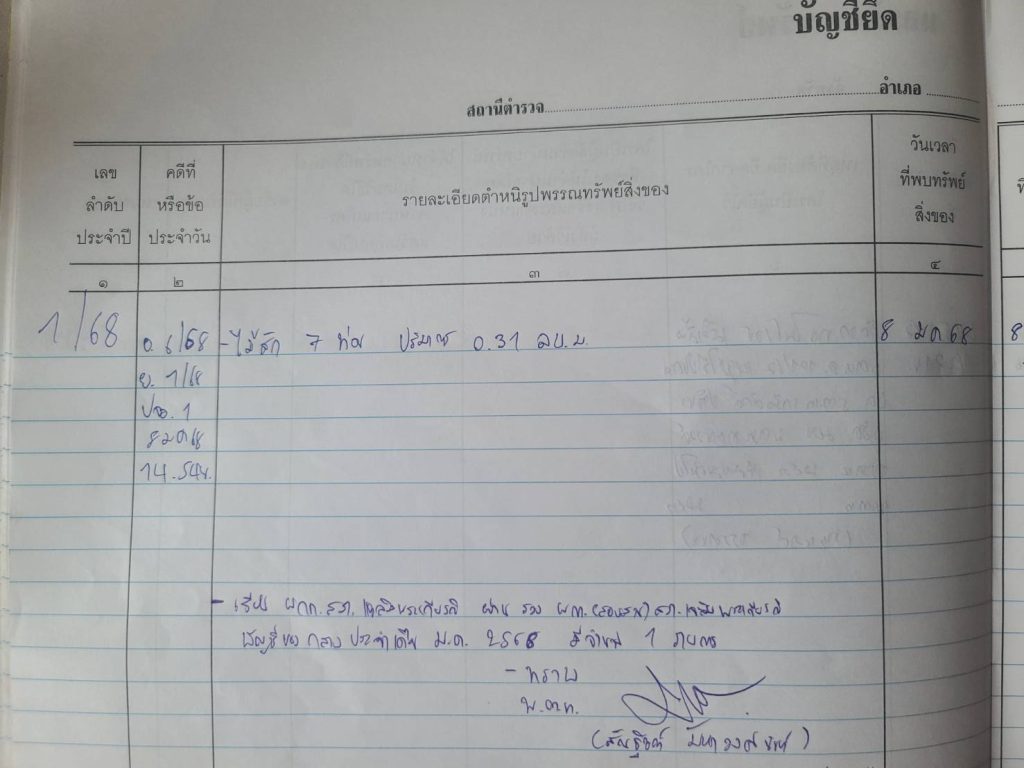 บัญชียึด
สถานีตำรวจ อำเภอ
เลขลำดับประจำปี
คดีที่หรือข้อประจำวัน
รายละเอียดตำหนิรูปพรรณทรัพย์สิ่งของ
วันเวลาที่พบทรัพย์สิ่งของ
๑ ๒ ๓ ๔
1/68 - ไม้สัก 7 ท่อน ปริมาตร 0.31 ลบ.ม. 8 ม.ค 68 8
ย. 1/68
ปจว. 1
8 ม.ค 68
14.54 น.
- เรียน ผกก.สภ.เฉลิมพระเกียรติ ผ่าน รอง ผกก.(สอบสวน)สภ.เฉลิมพระเกียรติ
บัญชีของกลางประจำเดือน ม.ค. 2568 มีจำนวน 1 รายการ
- ทราบ
พ.ต.ท.